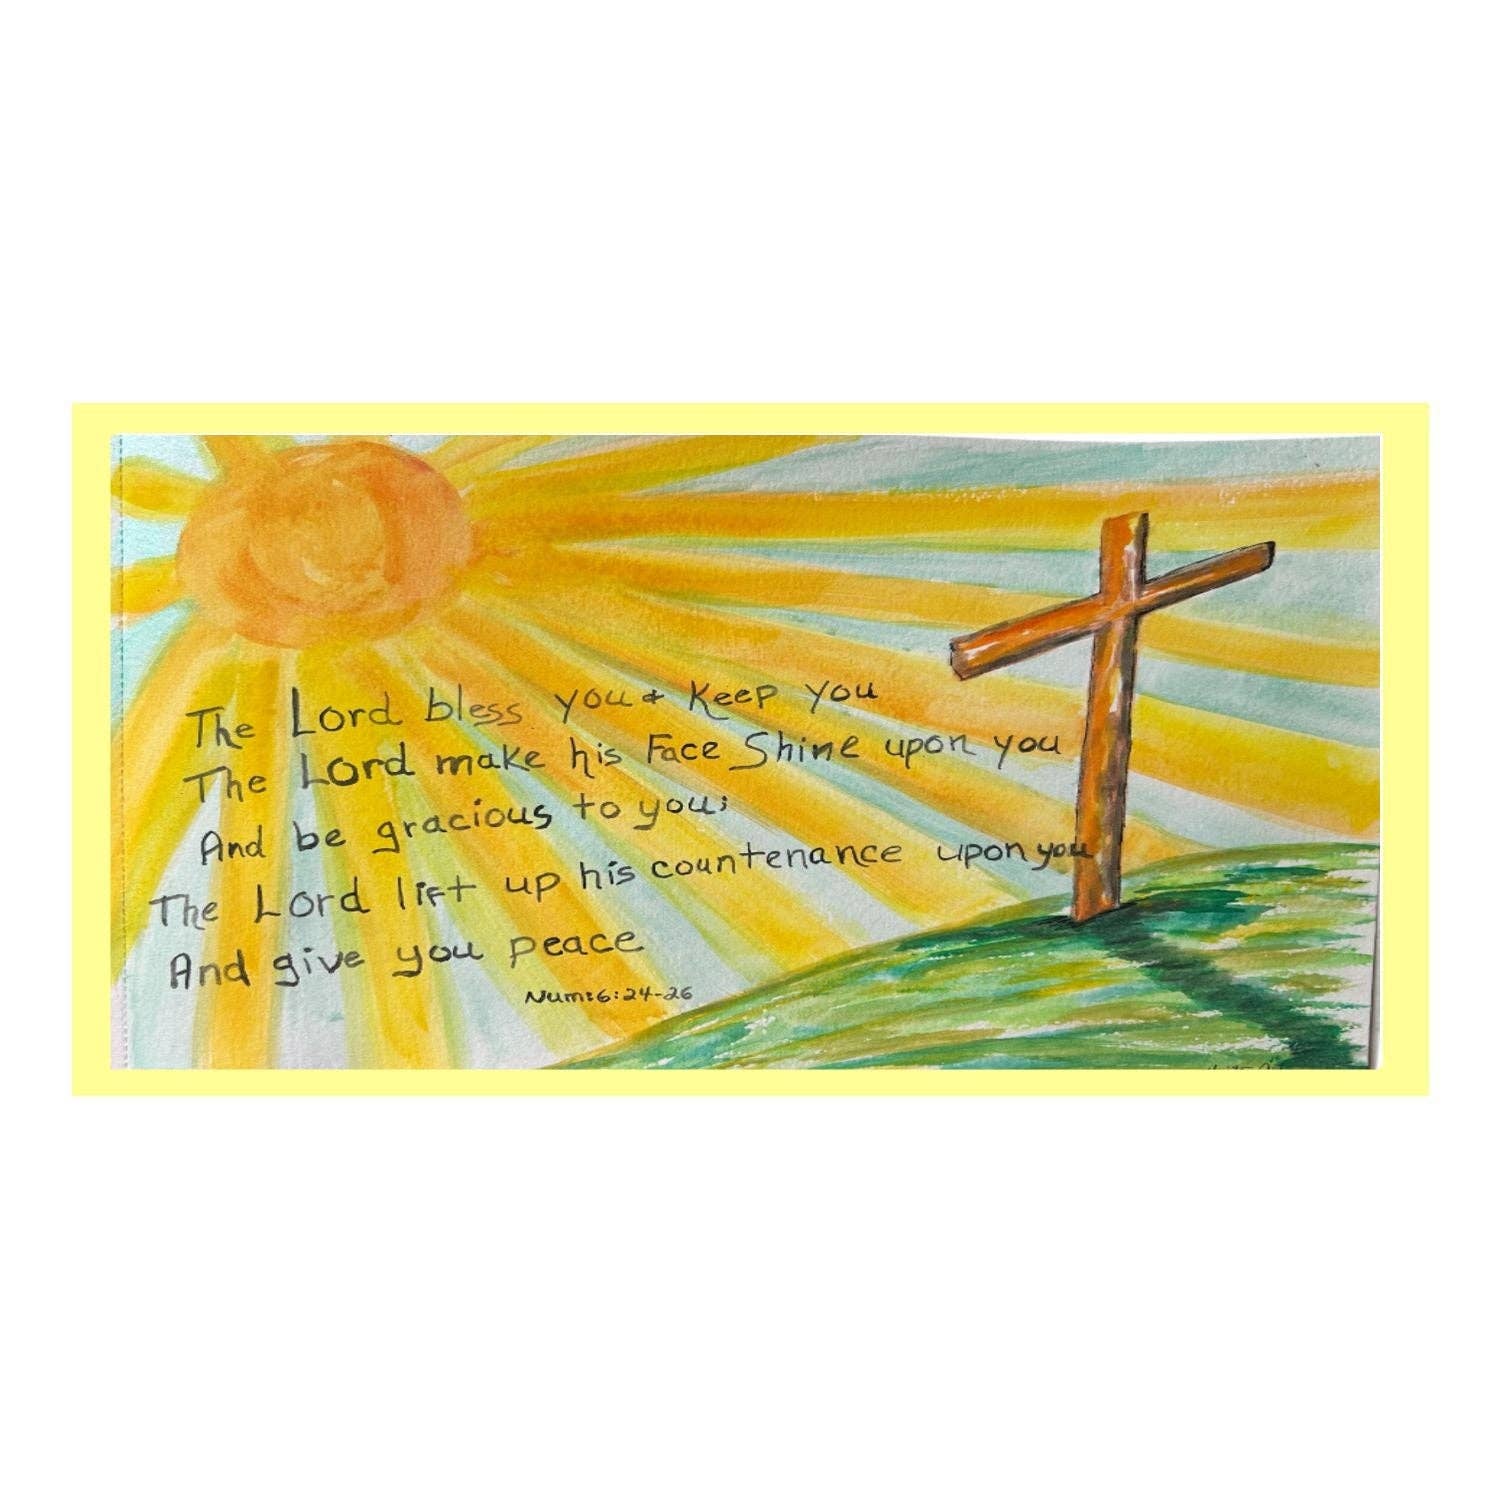 The Lord bless you & Keep you
The Lord make his Face Shine upon you
And be gracious to you;
The Lord lift up his countenance upon you
And give you peace
Num:6:24-26